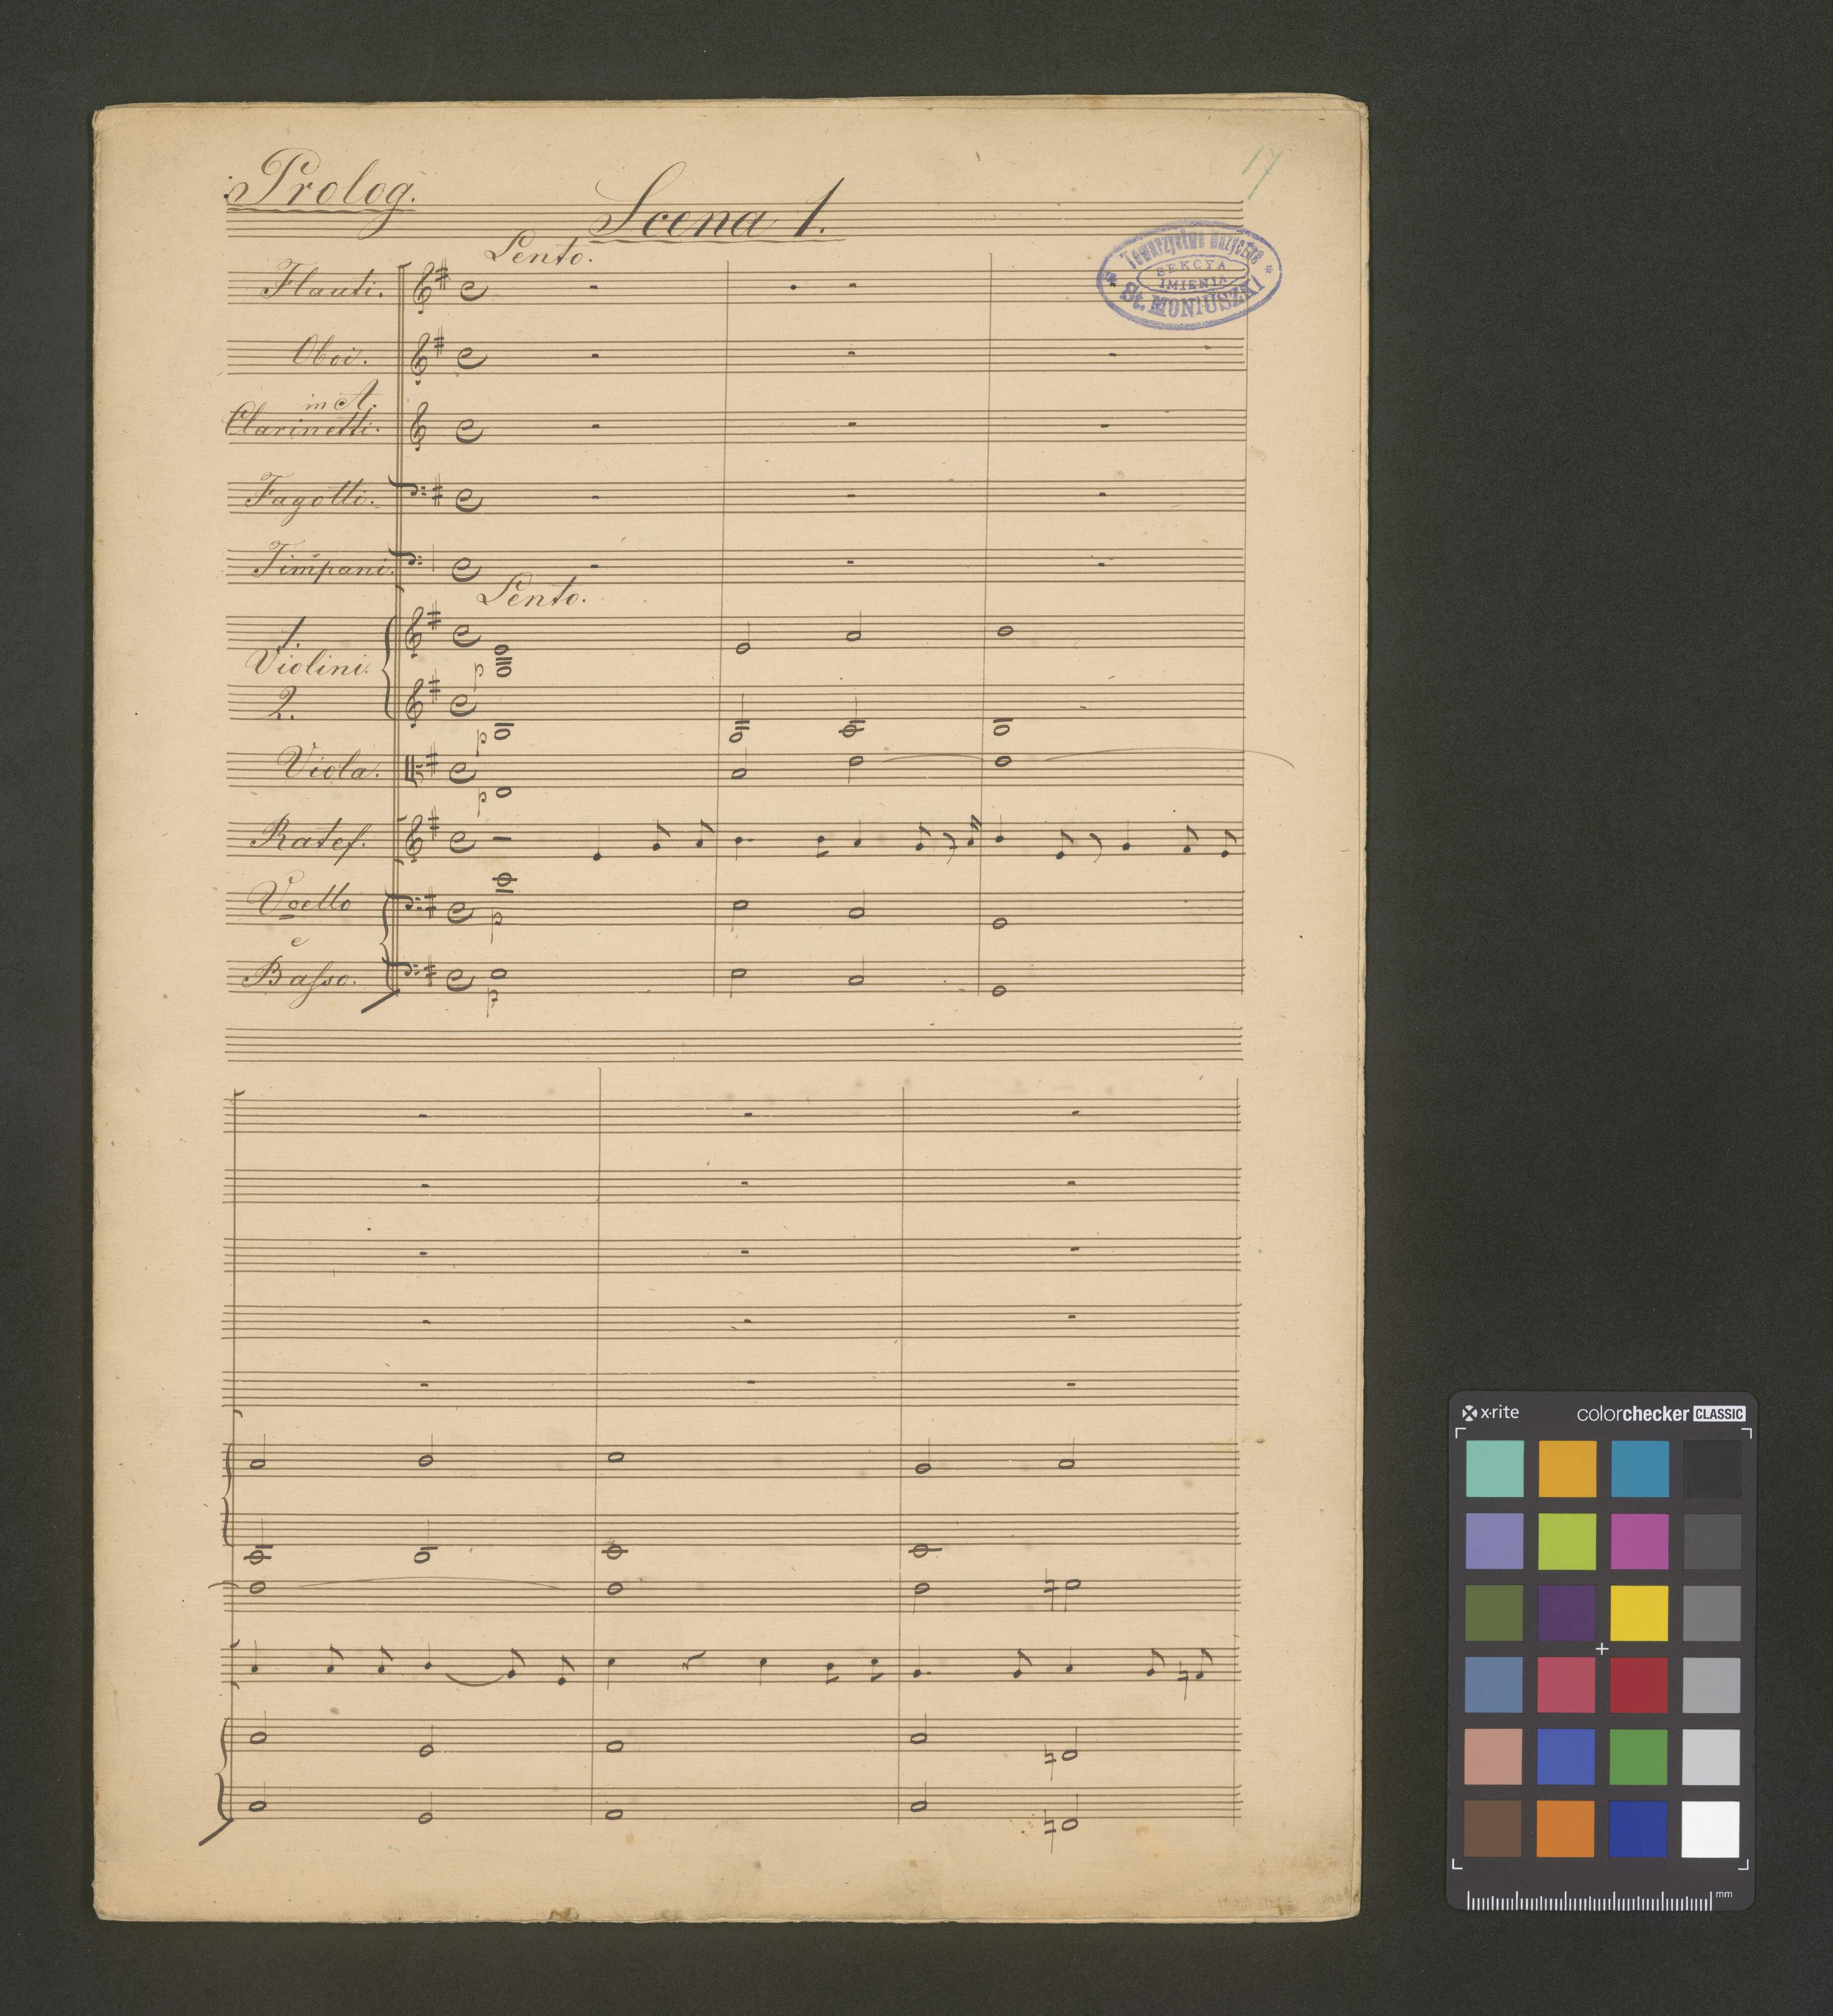 17
Prolog.
Scena 1.
Lento.
Towarzystwo Muzyczne
SEKCYA
IMIENIA
St. MONIUSZKI
Flauti.
Oboi.
in A.
Clarinetti.
Fagotti.
Timpani.
Lento.
1.
Violini.
2.
p
p
Viola.
p
Ratef.
Vcello
p
e
Basso.
p
x·rite
colorchecker CLASSIC
mm